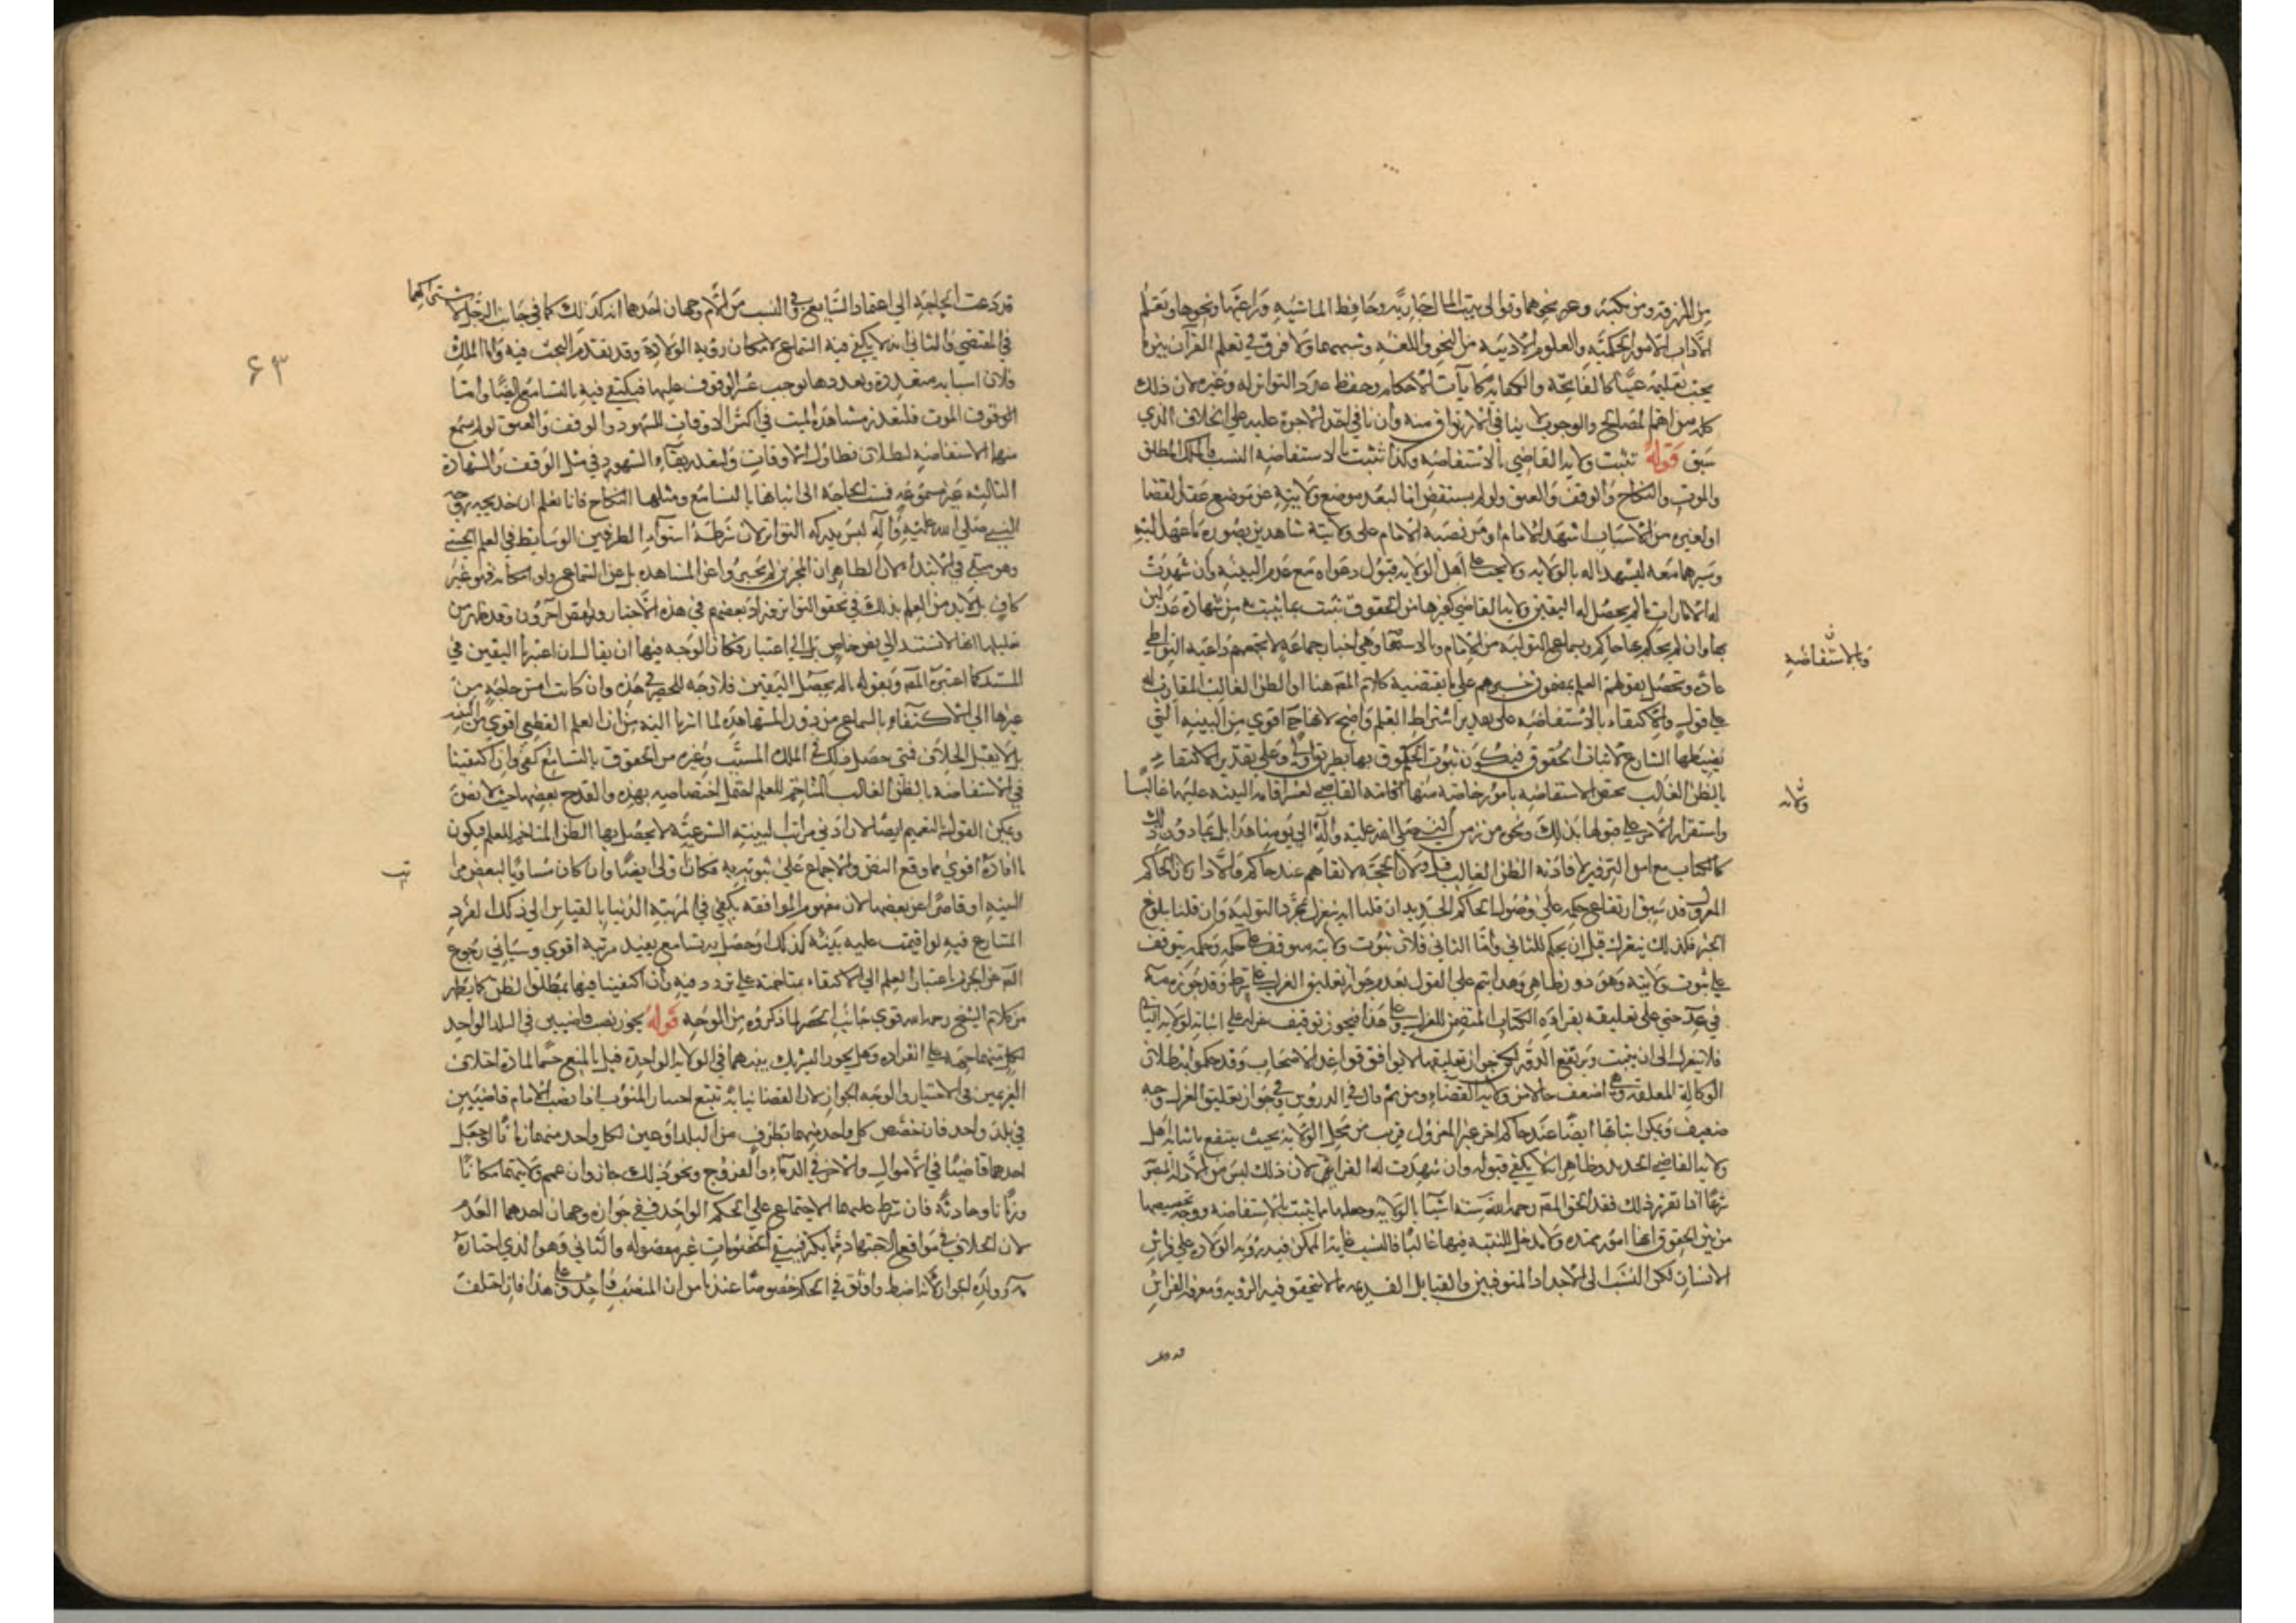 من المرتزقة ومن يكتبه وعمن نحوهما وتوالى بيت المال كجابيه وحافظ الماشيه وراعيها ونحوها وتعليم
الآداب الامور الحكميه والعلوم الادبيه من النحو واللغه وشبههما ولا فرق في تعلم القرآن بين ما
يجب تعليمه عينا كالفاتحة والكفايه كآيات الاحكام وحفظ عدد التواتر له وغيره لان ذلك
كله من اهم المصالح والوجوب لا ينافي الارتزاق منه وان نافى اخذ الاجرة عليه على الخلاف الذي
سبق قوله تثبت ولاية القاضي بالاستفاضه وكذا تثبت بالاستفاضه النسب والملك المطلق
والموت والنكاح والوقف والعتق ولو لم يستفض اما لبعد موضع ولايته عن موضع عقد القضا
او لغيره من الاسباب اشهد الامام او من نصبه الامام على ولايته شاهدين بصورة ما عهد اليه
وسيرهما معه ليشهدا له بالولايه ولا يجب على أهل الولايه قبول دعواه مع عدم البينه وان شهدت
له الامارات ما لم يحصل له اليقين ولاية القاضي كغيرها من الحقوق تثبت بما يثبت به من شهادة عدلين
بها وان لم يحكم بها حاكم وبسماع التوليه من الامام وبالاستفاضه وهي اخبار جماعه لا يجمعهم داعية التواطي
وبالاستفاضه
عادة ويحصل بقولهم العلم بمضمون خبرهم على ما يقتضيه كلام المصه هنا او الظن الغالب المقارب له
على قول والاكتفاء بالاستفاضه على تقدير اشتراط العلم واضح لانها ح اقوى من البينه التي
نصبها الشارع لاثبات الحقوق فيكون ثبوت الحقوق بها بطريق اولى وعلى تقدير الاكتفاء
بالظن الغالب يختص الاستفاضه بامور خاصه منها ولاية القاضي لعسر اقامة البينه عليها غالبا
ولانه
واستقرار الامر على قبولها بذلك ونحوه من زمن النبي صلى الله عليه وآله الى يومنا هذا بل بما دون ذلك
كالكتاب مع امن التزوير لافادته الظن الغالب قيل ولان الحجة لا تقام عند حاكم والا دار لان الحاكم
المعزول قد سبق ارتفاع حكمه على وصول الحاكم الجديد ان قلنا انه ينعزل بمجرد التوليه وان قلنا بلوغ
الخبر فكذلك ينعزل قبل ان يحكم للثاني واما الثاني فلان ثبوت ولايته موقوف على حكمه وحكمه يتوقف
على ثبوت ولايته وهو دور ظاهر وهذا يتم على القول بعدم جواز تعليق العزل على شرط وقد جوزه المصه
في عد حتى على تعليقه بقراءة الكتاب المتضمن للعزل وعلى هذا فيجوز توقيف عزله على اثباته لولاية الثاني
فلا ينعزل الى ان يثبت ويرتفع الدور لكن جواز تعليقها لا يوافق قواعد الاصحاب وقد حكموا ببطلان
الوكالة المعلقه وهي اضعف حالا من ولاية القضاء ومن ثم قال في الدروس وفي جواز تعليق العزل وجه
ضعيف ويمكن اثباتها ايضا عند حاكم اخر غير المعزول قريب من محل الولاية بحيث ينتفع باثباته اهل
ولاية القاضي الجديد وظاهر انه لا يكفي قبوله وان شهدت له القرائن لان ذلك ليس من الادله المعتبرة
شرعا اذا تقرر ذلك فقد الحق المصه رحمه الله ستة اشيا بالولايه وجعلها مما يثبت بالاستفاضه ووجه تخصيصها
من بين الحقوق انها امور ممتده ولا مدخل للبينه فيها غالبا فالنسب غاية الممكن فيه رؤية الولادة على فراش
الانسان لكن النسب الى الاجداد المتوفين والقبايل القديمه مما لا يتحقق فيه الرؤيه ومعرفة الفراش
قد دعت
قد دعت الحاجة الى اعتماد التسامع وفي النسب من الام وجهان احدهما انه كذلك كما في جانب الرجل لاشتراكهما
في المقتضي والثاني انه لا يكفي فيه السماع لامكان رؤية الولادة وقد تقدم البحث فيه واما الملك
فلان اسبابه متعددة وتعددها يوجب عسر الوقوف عليها فيكتفى فيه بالتسامع ايضا واما
۶۳
الوقوف الموت فلتعذر مشاهدة الميت في اكثر الاوقات للشهود والوقف والعتق لو لم تسمع
فيهما الاستفاضه لبطلا لتطاول الاوقات ولتعذر بقاء الشهود في مثل الوقف والشهادة
الثالثه غير مسموعه فمست الحاجة الى اثباتها بالتسامع ومثلهما النكاح فانا نعلم ان خديجه زوجة
النبي صلى الله عليه وآله ليس مدركه التواتر لان شرطه استواء الطرفين والوسايط في العلم الحسي
وهو منتف في الابتداء لان الظاهر ان المخبرين لم يخبروا عن المشاهده بل عن السماع واما امكانه فهو غير
كاف بل لا بد من العلم بذلك في تحقق التواتر وزاد بعضهم في هذه الاخبار ونقص آخرون وقد ظهر من
تعليلها انها لا تستند الى نص خاص بل الى اعتبار فكان الوجه فيها ان يقال ان اعتبرنا اليقين في
المستند كما اعتبره المصه وبقوله ما لم يحصل اليقين فلا وجه للحصر في هذه وان كانت امس حاجة من
غيرها الى الاكتفاء بالسماع من دون المشاهده لما اشرنا اليه من ان العلم القطعي اقوى من البينه
بل لا يقبل الخلاف فمتى حصل ذلك في الملك المسبب وغيره من الحقوق بالتسامع كفى وان اكتفينا
في الاستفاضه بالظن الغالب المتاخم للعلم احتمل اختصاصه بهذه والقدح ببعضها حيث لا نص
ويمكن القول بالتعميم ايضا لان ادنى مراتب البينه الشرعيه لا يحصل بها الظن المتاخم للعلم فيكون
ما افاده اقوى مما وقع النص والاجماع على ثبوته به فكان اولى ايضا وان كان مساويا لبعض مراتب
البينه او قاصرا عن بعضها لان مفهوم الموافقه يكفي في المرتبة الدنيا بالقياس الى ذلك الفرد
المتنازع فيه لو اقيمت عليه بينة كذلك او حصل به تسامع يفيد مرتبة اقوى وسيأتي رجوع
المصه عن الجزم باعتبار العلم الى الاكتفاء بمتاخمته على تردد فيه وان اكتفينا فيها بمطلق الظن كما يظهر
من كلام الشيخ رحمه الله قوي جانب الحصر لما ذكروه من الوجه قوله يجوز نصب قاضيين في البلد الواحد
لكل منهما جهة على انفراده وهل يجوز التشريك بينهما في الولاية الواحدة قيل بالمنع حسما لمادة اختلاف
الغريمين في الاختيار والوجه الجواز لان القضا نيابة تتبع اختيار المنوب اذا نصب الامام قاضيين
في بلد واحد فان خصص كل واحد منهما بطرف من البلد او عين لكل واحد منهما زمانا او جعل
احدهما قاضيا في الاموال والاخر في الدماء والفروج ونحو ذلك جاز وان عمم ولايتهما مكانا
وزمانا وحادثة فان شرط عليهما الاجتماع على الحكم الواحد ففي جوازه وجهان احدهما العدم
لان الخلاف في مواقع الاجتهاد مما يكثر فتبقى الخصومات غير مفصوله والثاني وهو الذي اختاره
وولده الجواز لانه اضبط واوثق في الحكم خصوصا عندنا من ان المصيب واحد وعلى هذا فان اختلف